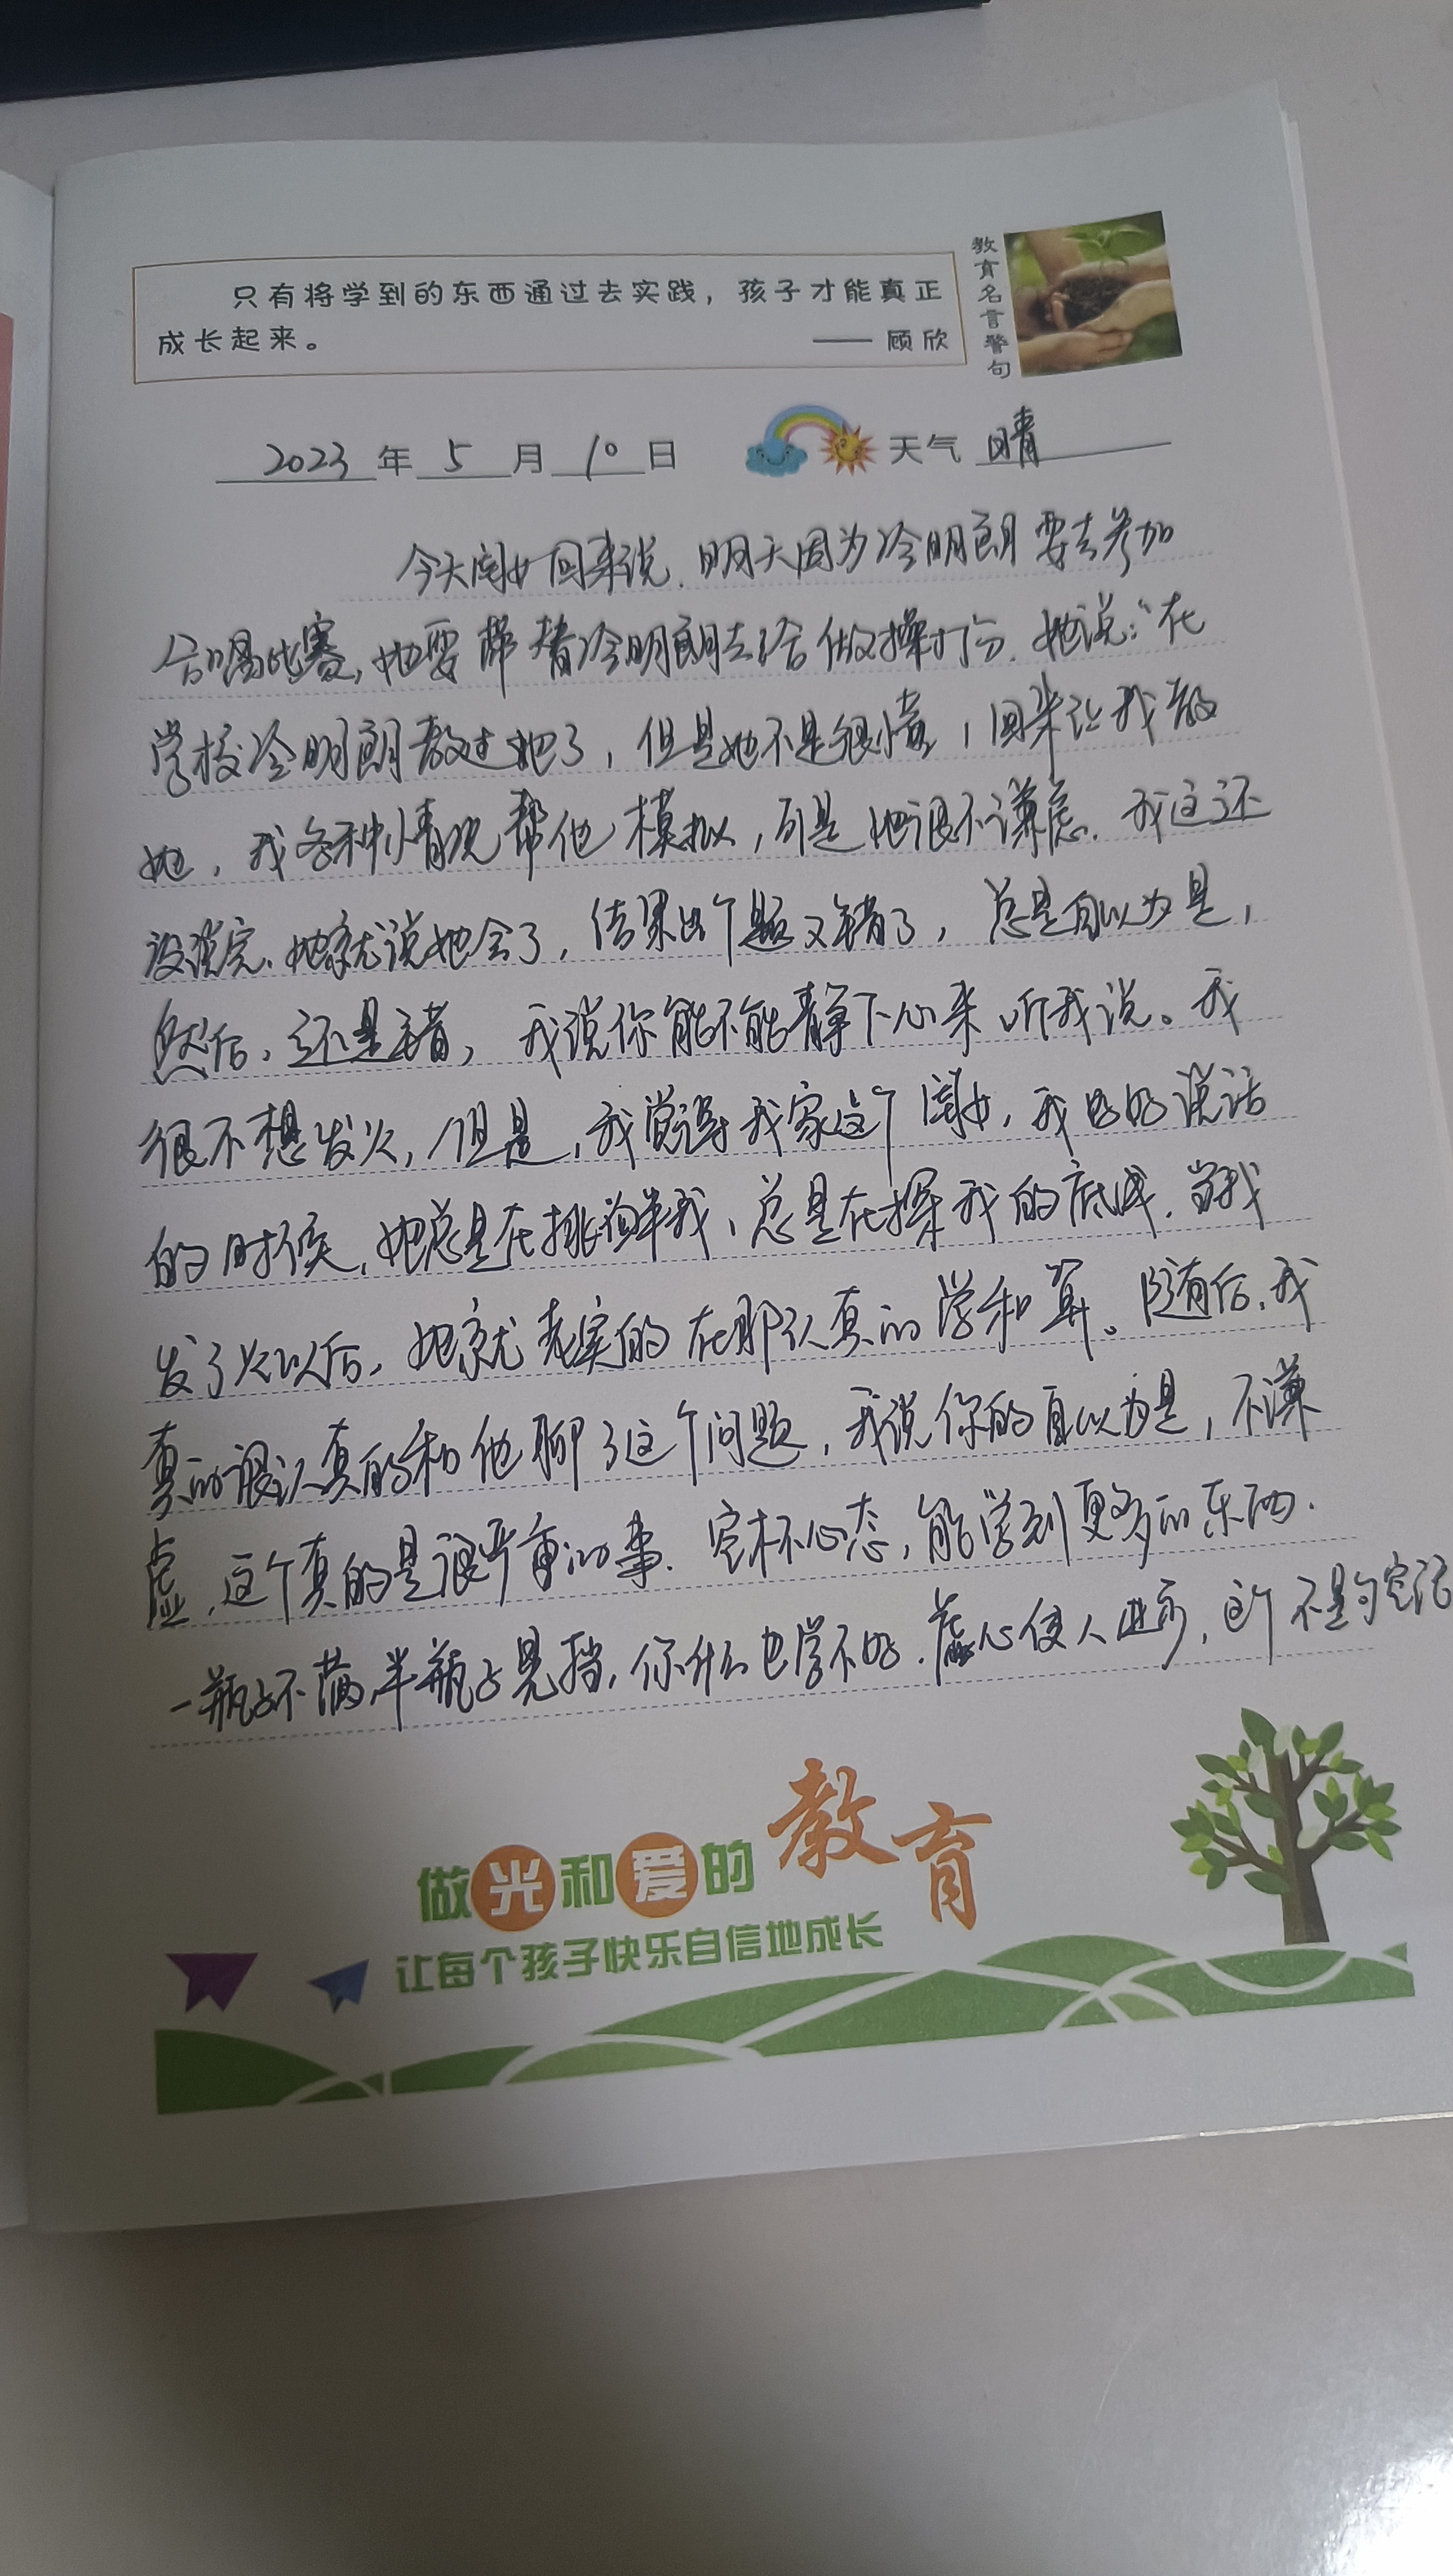 只有将学到的东西通过去实践，孩子才能真正
成长起来。
—— 顾欣
教育名言警句
2023 年 5 月 10 日
天气 晴
今天闺女回来说，明天因为冷明朗要去参加
合唱比赛，她要替冷明朗去给做操打分，她说：“在
学校冷明朗教过她了，但是她不是很懂，回来让我教
她，我各种情况帮他模拟，可是她很不谦虚，我这还
没说完，她就说她会了，结果出个题又错了，总是自以为是，
然后，还是错，我说你能不能静下心来听我说。我
很不想发火，但是，我觉得我家这个闺女，我好好说话
的时候，她总是在挑衅我，总是在探我的底线，当我
发了火以后，她就老实的在那认真的学和算。随后，我
真的很认真的和他聊了这个问题，我说你的自以为是，不谦
虚，这个真的是很严重的事，空杯心态，能学到更多的东西.
一瓶子不满，半瓶子晃挡，你什么也学不好.虚心使人进步，这个不是句空话
做光和爱的教育
让每个孩子快乐自信地成长